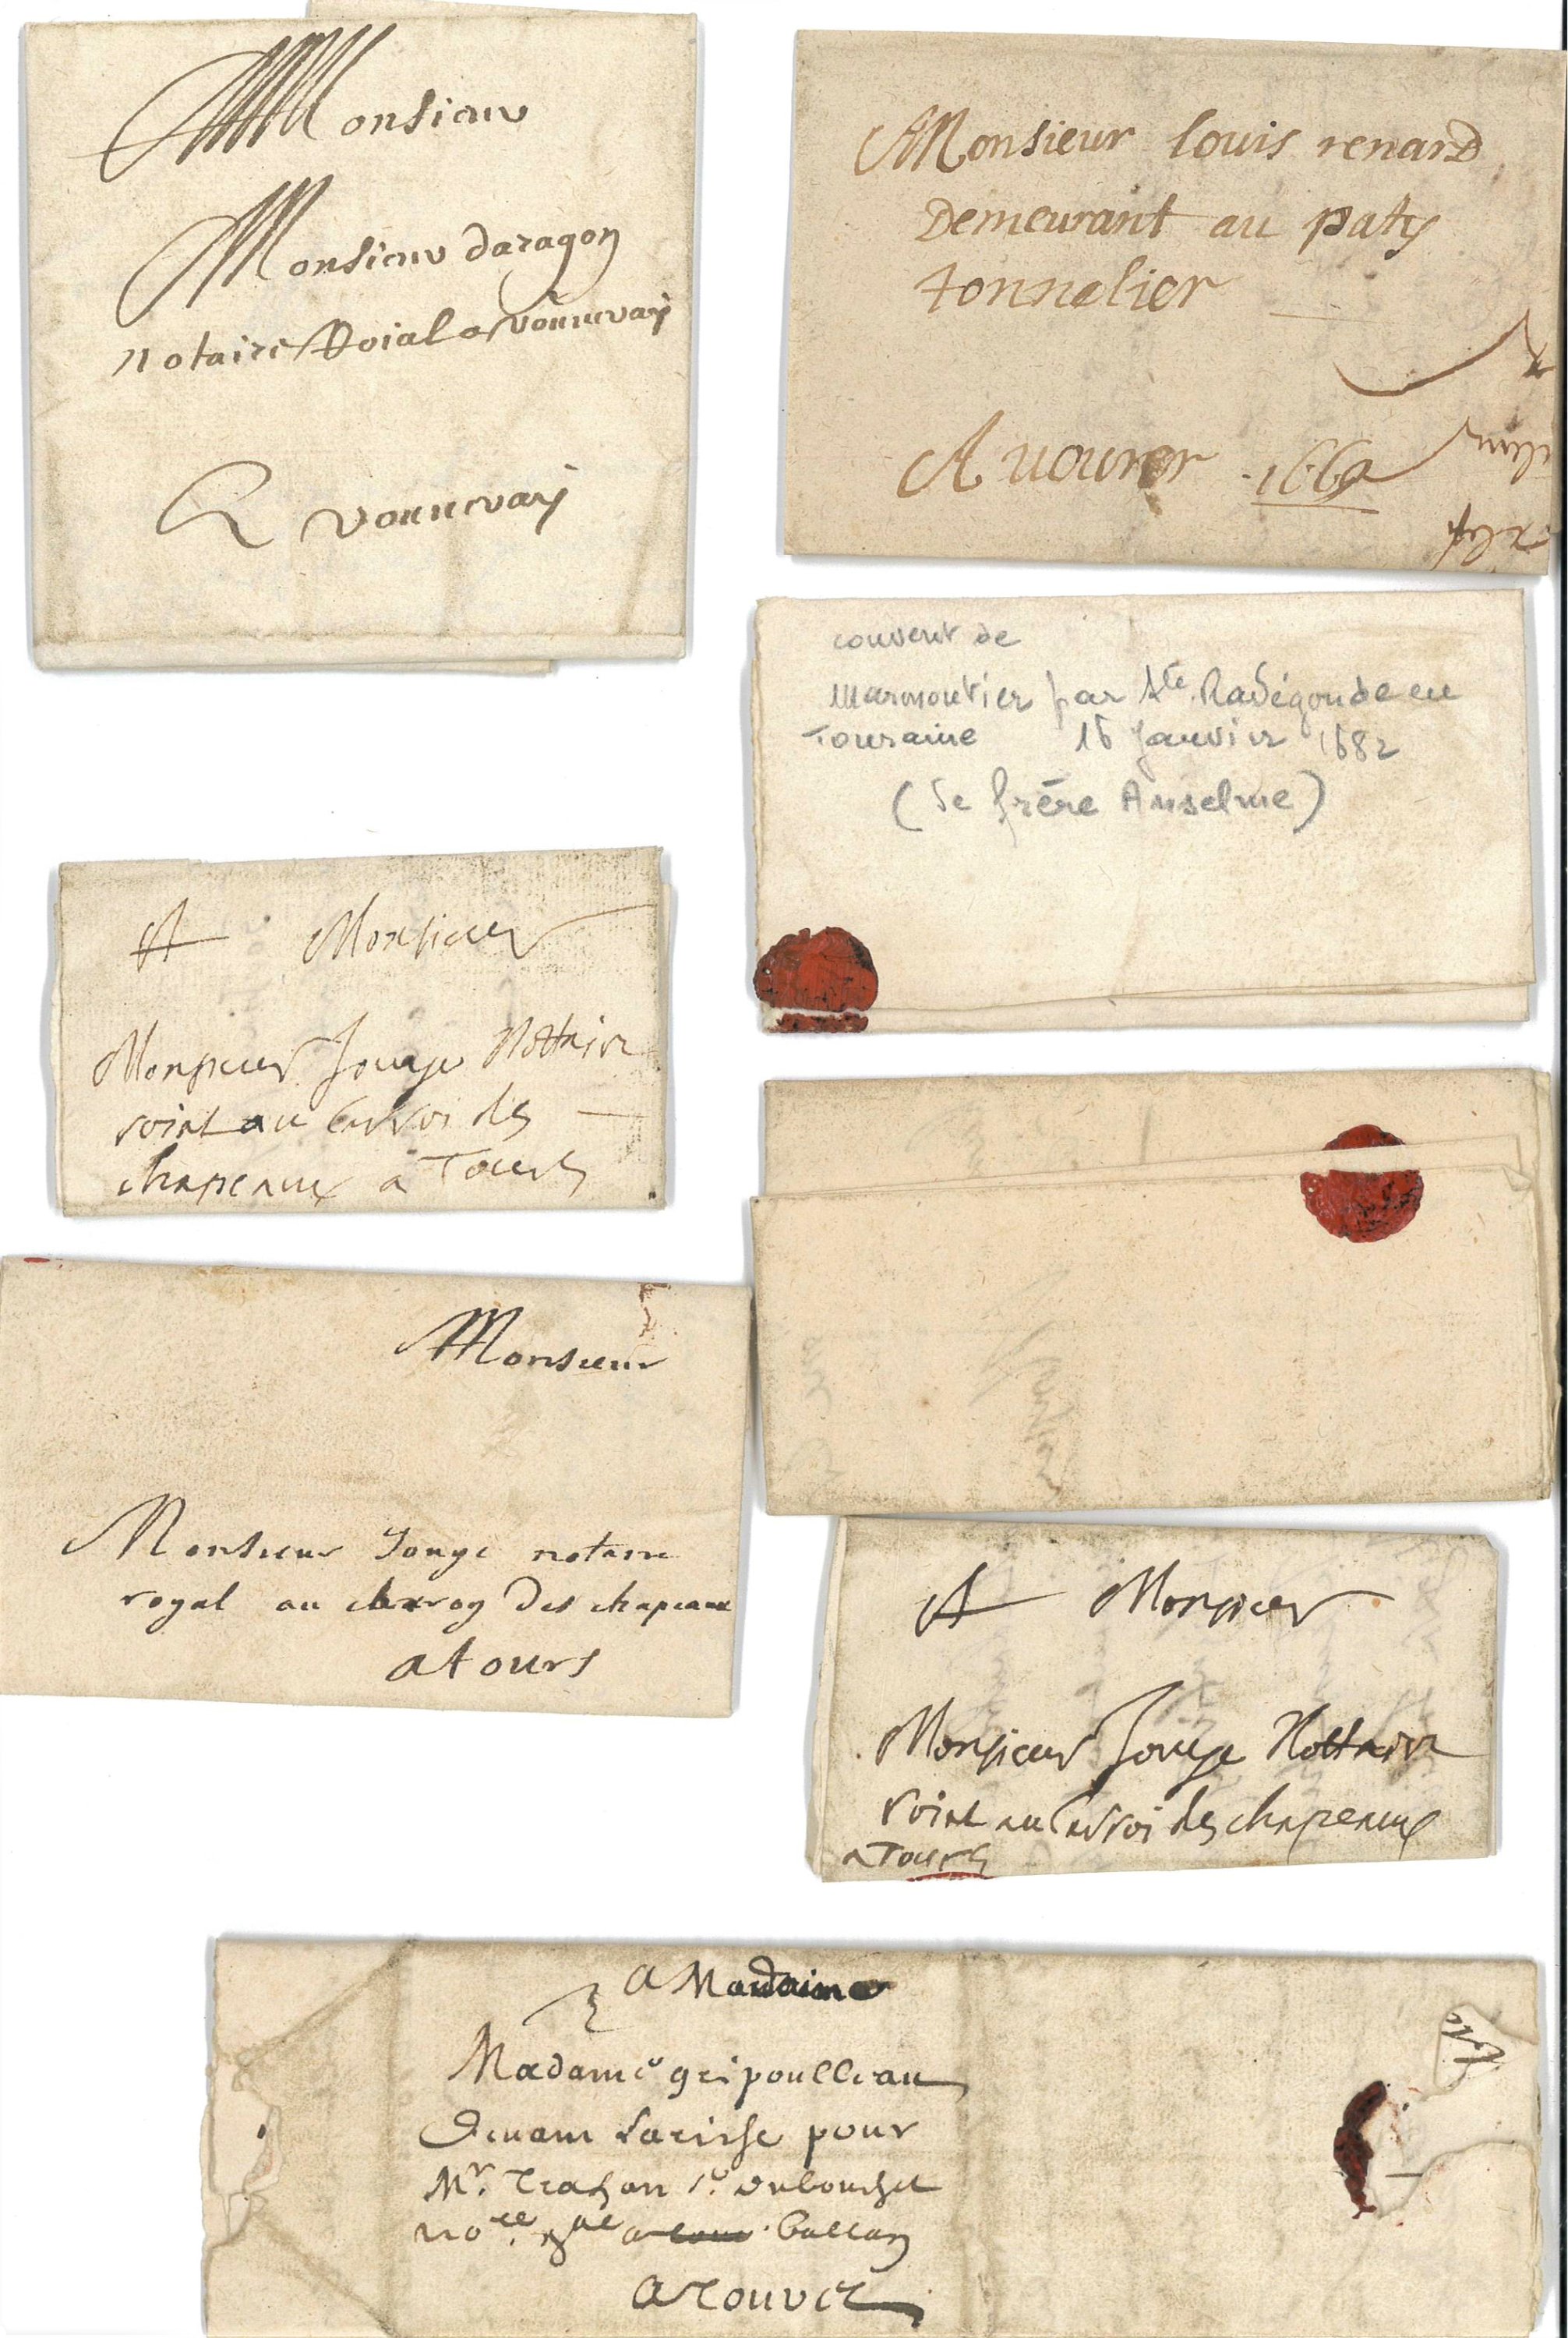 Monsieur
Monsieur daragon
notaire Roial a vouuvray
A vouuvray
Monsieur louis renard
Demeurant au paty
tonnelier
A uouurer 1669
couvent de
Marmoutier par Ste. Radégonde en
Touraine 16 Janvier 1682
(de frère Anselme)
A Monsieur
Monsieur Jouye Nottaire
roial au Carroi des
chapeaux à Tours
Monsieur
Monsieur Jouye notaire
royal au charroy des chapeaux
a tours
A Monsieur
Monsieur Jouye Nottaire
roial au Carroi des chapeaux
a Tours
a Madame
Madame gripoulleau
pour
Mr. sr. dubouchet
nore. ral a Ballan
a